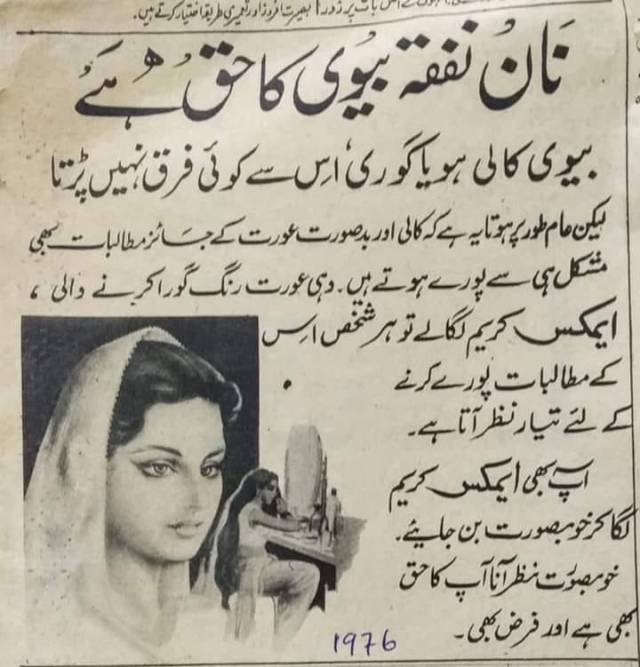 بصیرت افروز اور تعمیری طریقہ اختیار کرتے ہیں.
نان نفقہ بیوی کا حق ہے
بیوی کالی ہو یا گوری، اِس سے کوئی فرق نہیں پڑتا
لیکن عام طور پر ہوتا یہ ہے کہ کالی اور بدصورت عورت کے جائز مطالبات بھی
مشکل ہی سے پورے ہوتے ہیں۔ وہی عورت رنگ گورا کرنے والی،
ایمکس کریم لگالے تو ہر شخص اِس
کے مطالبات پورے کرنے
کے لئے تیار نظر آتا ہے۔
آپ بھی ایمکس کریم
لگا کر خوبصورت بن جایئے۔
خوبصورت نظر آنا آپ کا حق
بھی ہے اور فرض بھی۔
1976